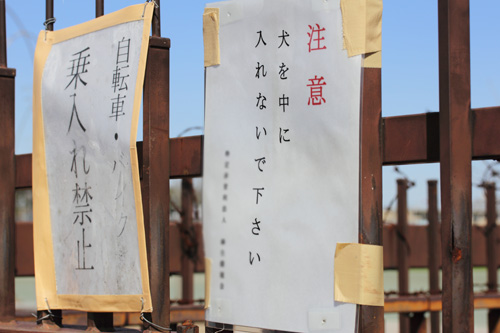 注意
犬を中に
入れないで下さい
自転車・バイク
乗入れ禁止